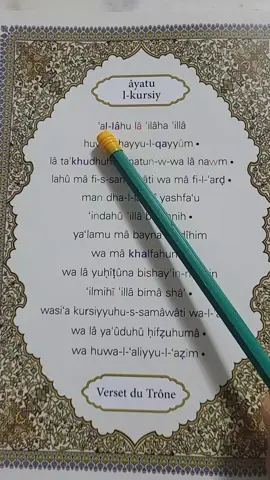 âyatu
l-kursiy
'al-lâhu lâ 'ilâha 'illâ
hayyu-l-qayyûm •
lâ ta'khudhuhû wa lâ nawm •
lahû mâ fi-s- wa mâ fi-l-'arḍ •
man dha-l- yashfa'u
'indahû 'illâ
ya'lamu mâ bayna
wa mâ khalfahum
wa lâ yuḥîṭûna bishay'in
'ilmihî 'illâ bimâ shâ'
wasi'a kursiyyuhu-s-samâwâti
wa lâ ya'ûduhû ḥifẓuhumâ •
wa huwa-l-'aliyyu-l-'aẓim •
Verset du Trône